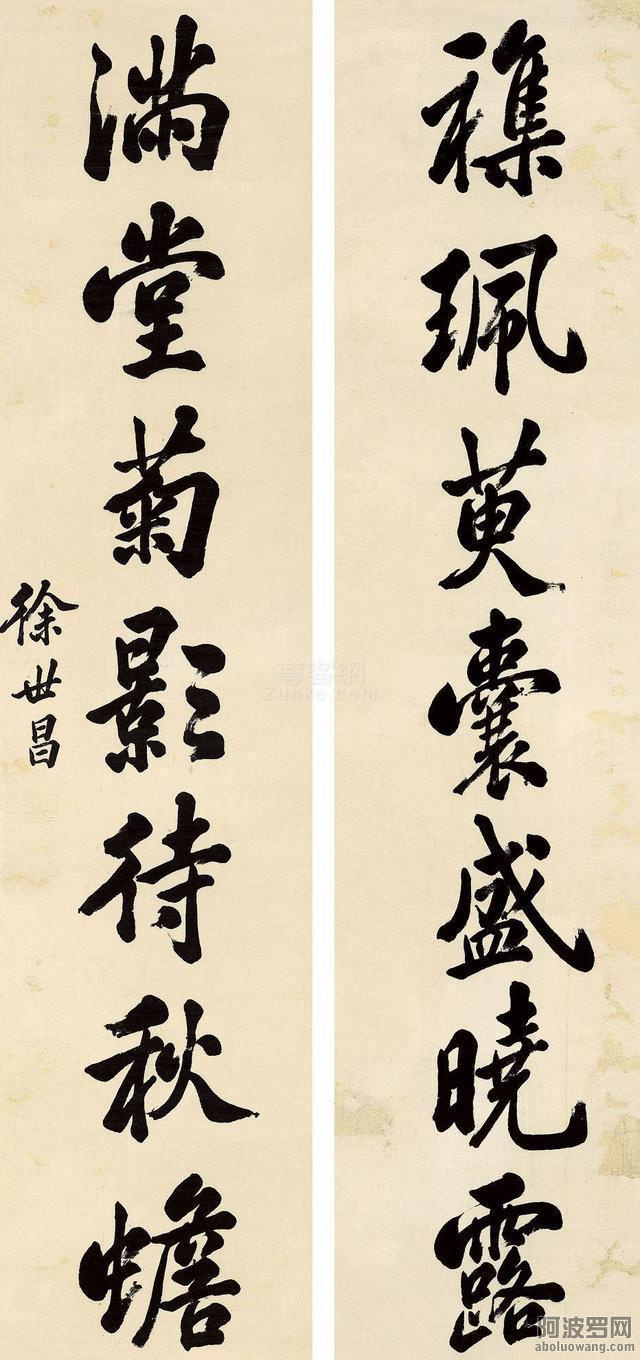 襍珮萸囊盛曉露
滿堂菊影待秋蟾
徐世昌
尊客網
Zunke.com
阿波罗网
aboluowang.com